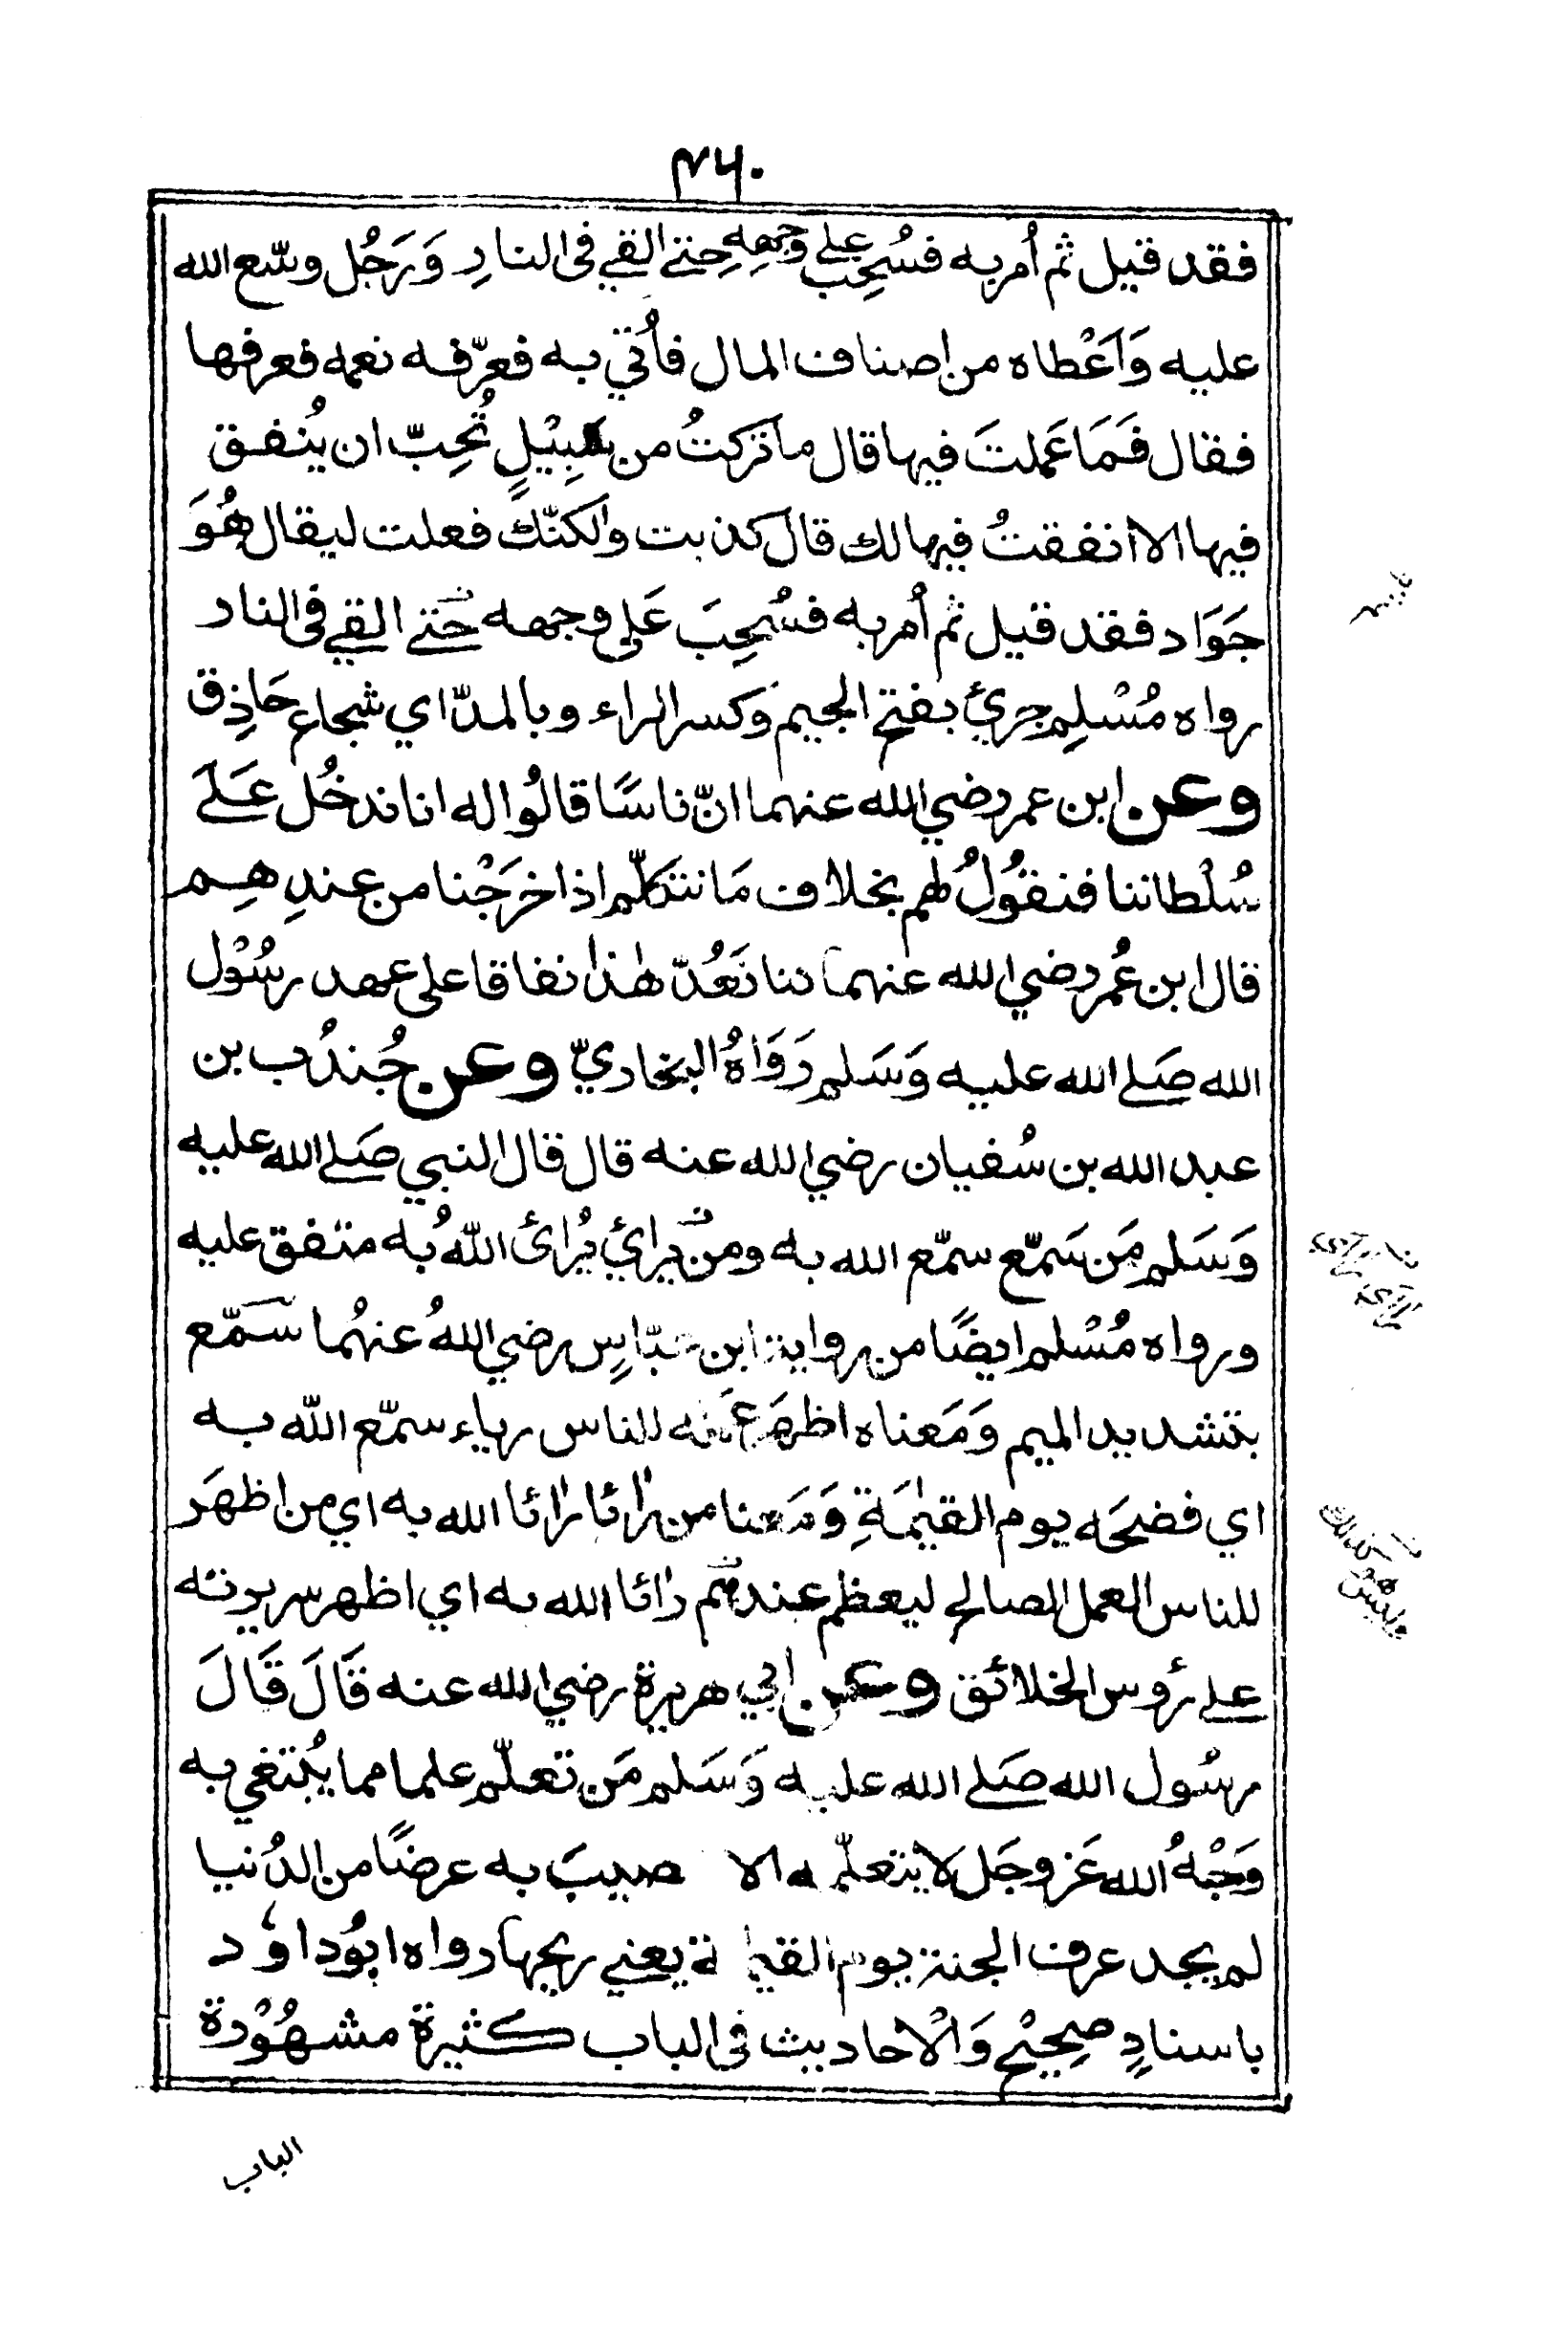 ۴۶۰
فقد قيل ثم أُمر به فسُحِب على وجهِهِ حتى القي فى النارِ وَرَجُل وسّع الله
عليه وَاَعْطاه من اصناف المال فأُتي به فعرّفه نعمه فعرفها
فقال فَمَا عَملتَ فيها قال ما تركتُ من سَبِيْلٍ تُحِبّ ان يُنفق
فيها الا انفقتُ فيها لك قال كذبت ولكنّك فعلت ليقال هُوَ
جَوَاد فقد قيل ثم أُمر به فسُحِبَ عَلى وجهه حتى القي فى النار
رواه مُسْلِم جرئ بفتح الجيم وكسر الراء وبالمدّ اي شجاع حَاذِق
وعن ابن عمر رضي الله عنهما انّ ناسًا قالُوا له انا ندخُل عَلَى
سُلْطاننا فنقوُلُ لهم بخلاف مَا نتكلّم اذا خرَجْنا من عندِهِم
قال ابن عُمر رضي الله عنهما كنا نَعُدّ هٰذا نفاقا على عهد رسُوْل
الله صَلى الله عليه وَسَلم رَوَاهُ البخاريّ وعن جُندُب بن
عبد الله بن سُفيان رضي الله عنه قال قال النبي صَلى الله عليه
وَسَلم مَن سَمّع سمّع الله به ومن يُرائي يُرائ اللّٰهُ به متفق عليه
ورواه مُسْلم ايضًا من رواية ابن عبّاسٍ رضي اللهُ عنهُما سَمّع
بتشديد الميم وَمَعناه اظهَر عمله للناس رياء سمّع اللّٰه به
اي فضحَه يوم القيٰمَةِ وَمَعنا من رٰائا رٰائا الله به اي من اظهَر
للناس العمل الصالح ليعظم عندهم رٰائا الله به اي اظهر سريرته
على رؤس الخلائق وعن ابي هريرة رضي الله عنه قَالَ قَالَ
رسُول الله صَلى الله عليه وَسَلم مَن تعلّم علما مما يُبتغي به
وَجْهُ الله عَز وجَل لا يتعلّمه الا صيبَ به عرضًا من الدُنيا
لم يجد عرف الجنة يوم القيا ة يعني ريحها رواه ابُو داوٗد
باسنادٍ صحِيْح وَالْاحاديث فى الباب كثيرة مشهُوْرة
الباب